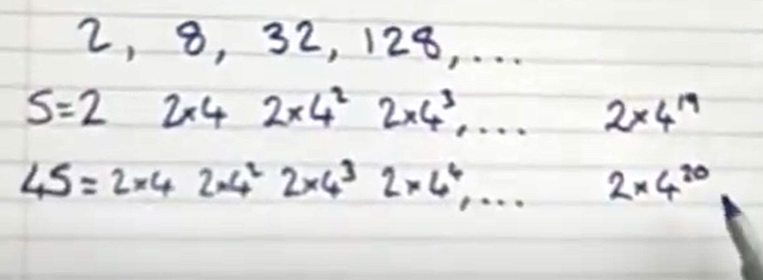 2, 8, 32, 128,...
S=2 2×4 2×4² 2×4³,... 2×4¹⁹
4S=2×4 2×4² 2×4³ 2×4⁴,... 2×4²⁰